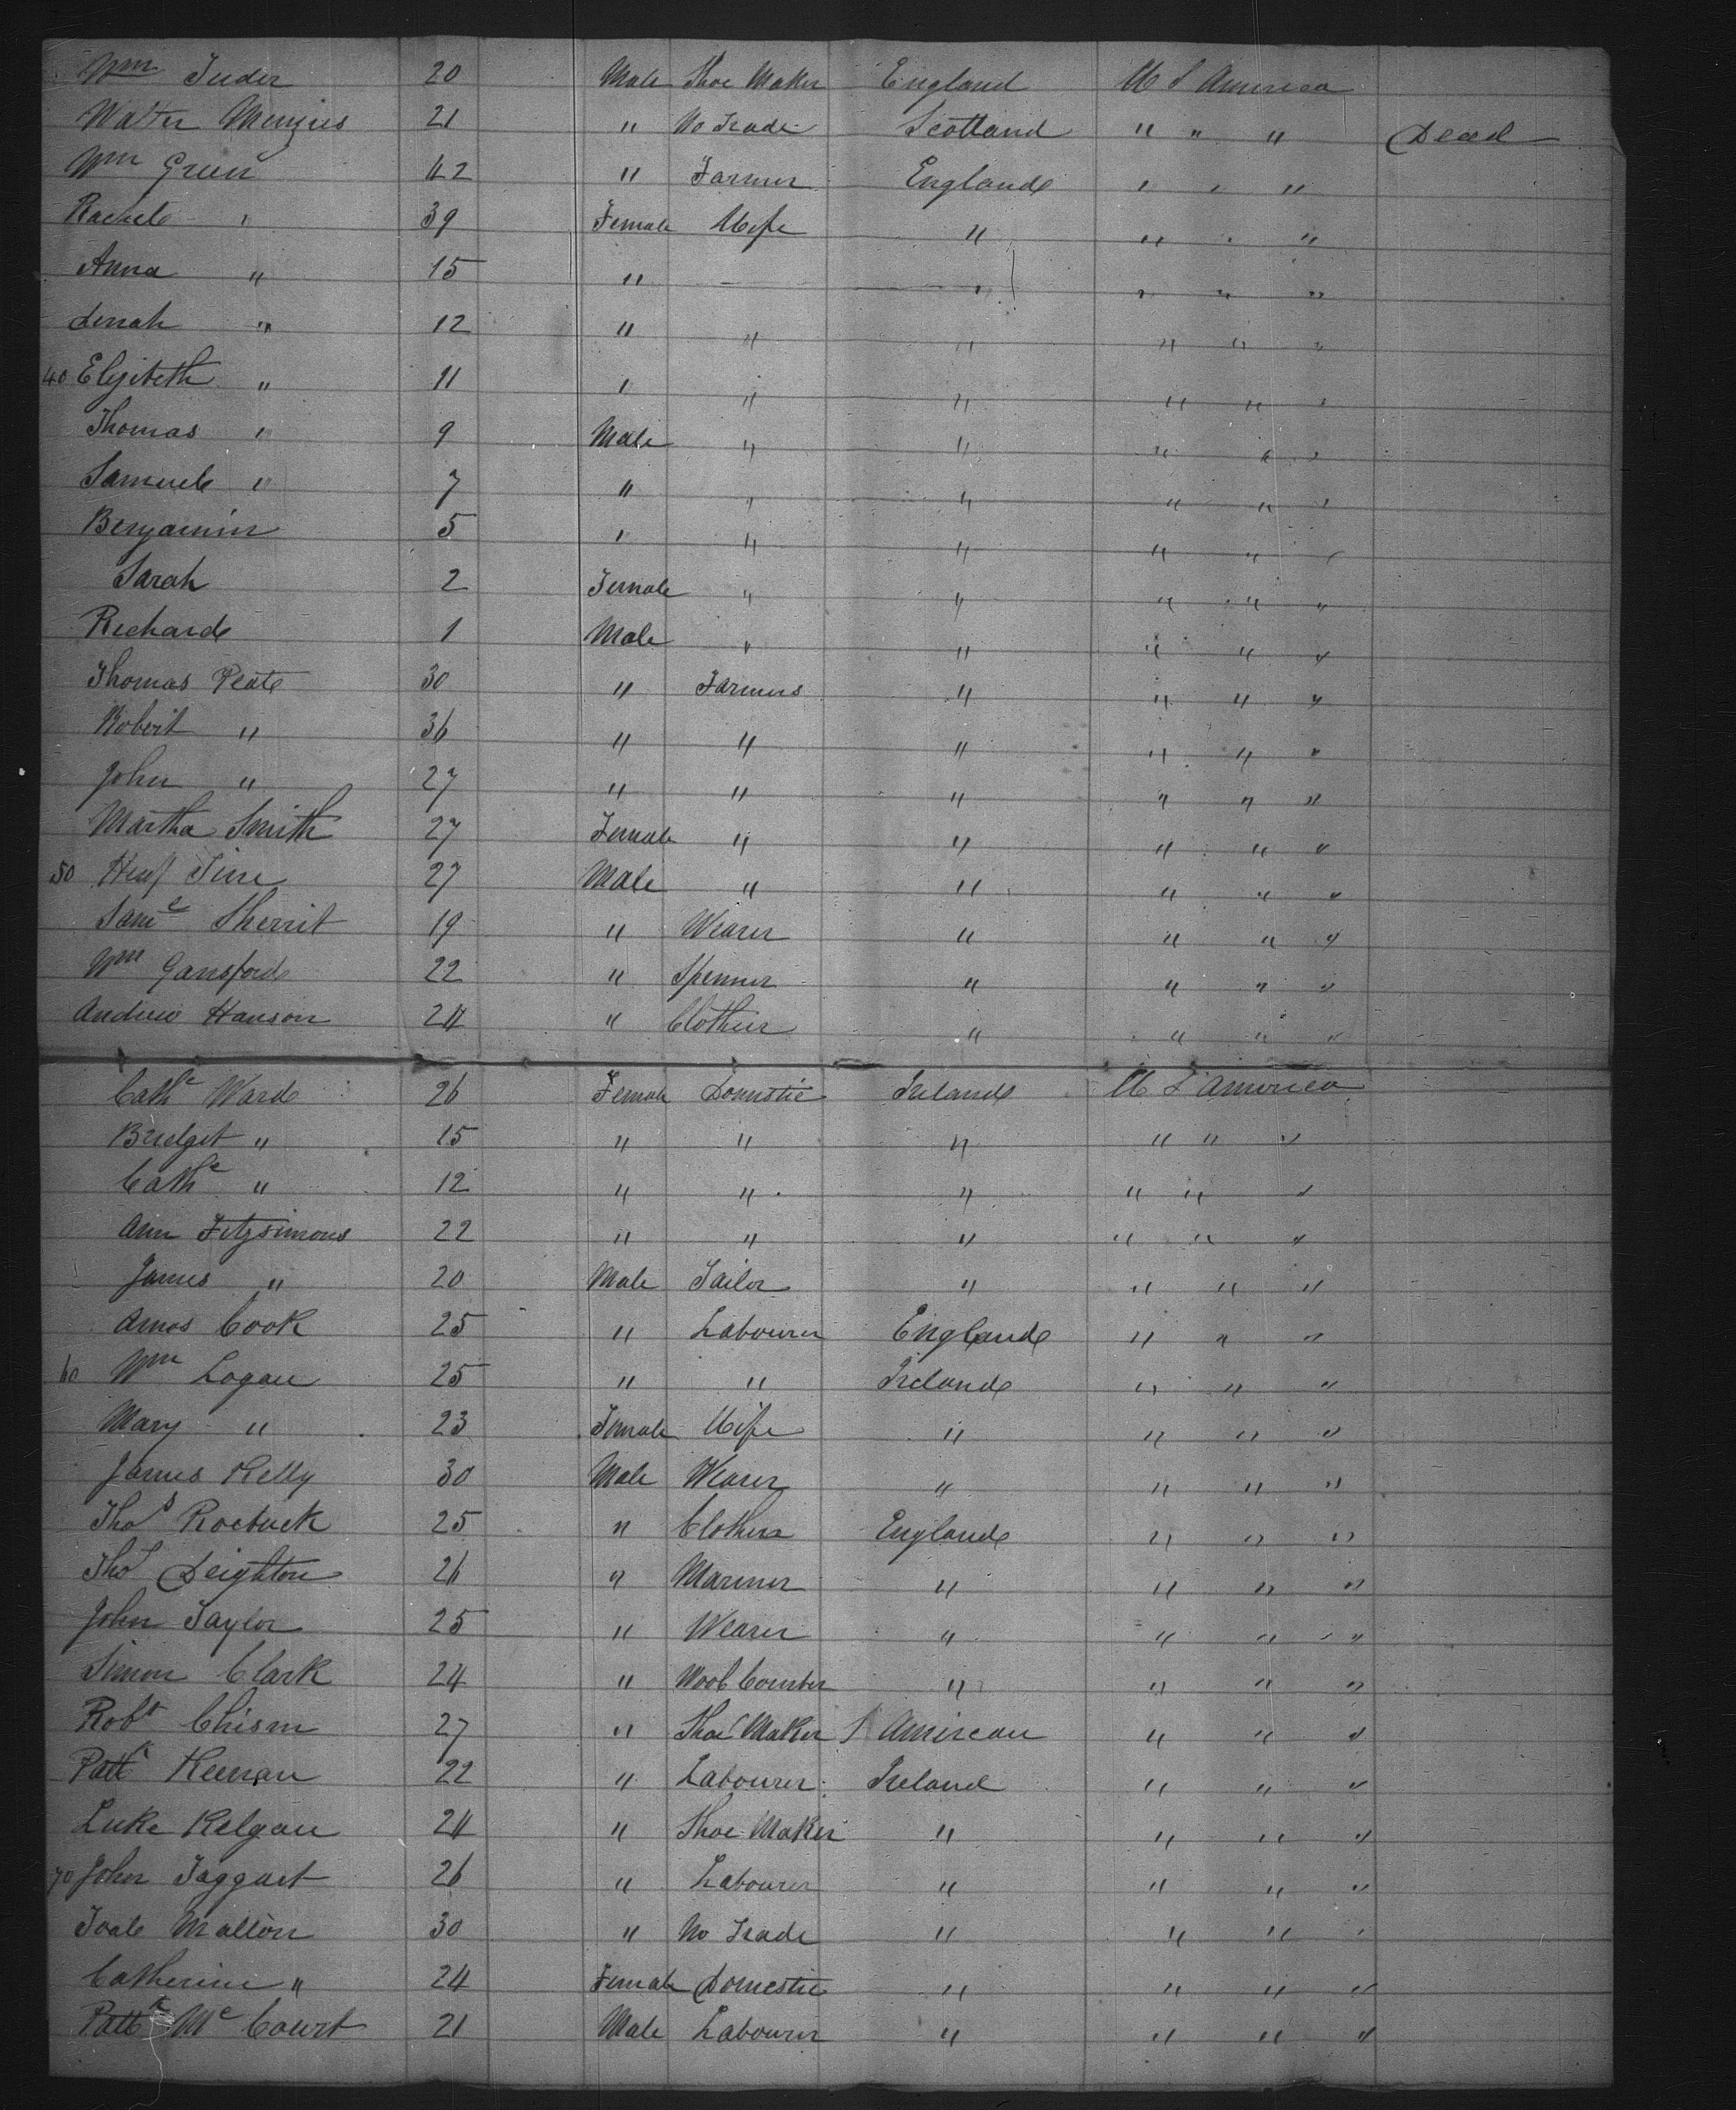 Wm Tuder 20 Male Shoe Maker England U S America
Walter Menzies 21 " No Trade Scotland " " " Dead
Wm Green 42 " Farmer England " " "
Rachel " 39 Female Wife " " " "
Anna " 15 " — " " " "
Lenah " 12 " " " " " "
40 Elizibeth " 11 " " " " " "
Thomas " 9 Male " " " " "
Samuel " 7 " " " " " "
Benjamin 5 " " " " " "
Sarah 2 Female " " " " "
Richard 1 Male " " " " "
Thomas Peate 30 " Farmers " " " "
Robert " 36 " " " " " "
John " 27 " " " " " "
Martha Smith 27 Female " " " " "
50 27 Male " " " " "
Saml Sherrit 19 " Weaver " " " "
Wm Gansford 22 " Spinner " " " "
Andrew Hanson 24 " Clothier " " " "
Cathe Ward 26 Female Domestic Ireland U S America
Bridget " 15 " " " " " "
Cathe " 12 " " " " " "
Ann Fitzsimons 22 " " " " " "
James " 20 Male Tailor " " " "
Amos Cook 25 " Labourer England " " "
60 Wm Logan 25 " " Ireland " " "
Mary " 23 Female Wife " " " "
James Kelly 30 Male Weaver " " " "
Thos Roebuck 25 " Clothier England " " "
Thos Deighton 26 " Mariner " " " "
John Taylor 25 " Weaver " " " "
Simon Clark 24 " Wool Comber " " " "
Robt Chism 27 " Shoe Maker S American " " "
Pattk Keenan 22 " Labourer Ireland " " "
Luke Kelgan 24 " Shoe Maker " " " "
70 John Taggart 26 " Labourer " " " "
Toal Mallon 30 " No Trade " " " "
Catherine " 24 Female Domestic " " " "
Pattk Mc Court 21 Male Labourer " " " "